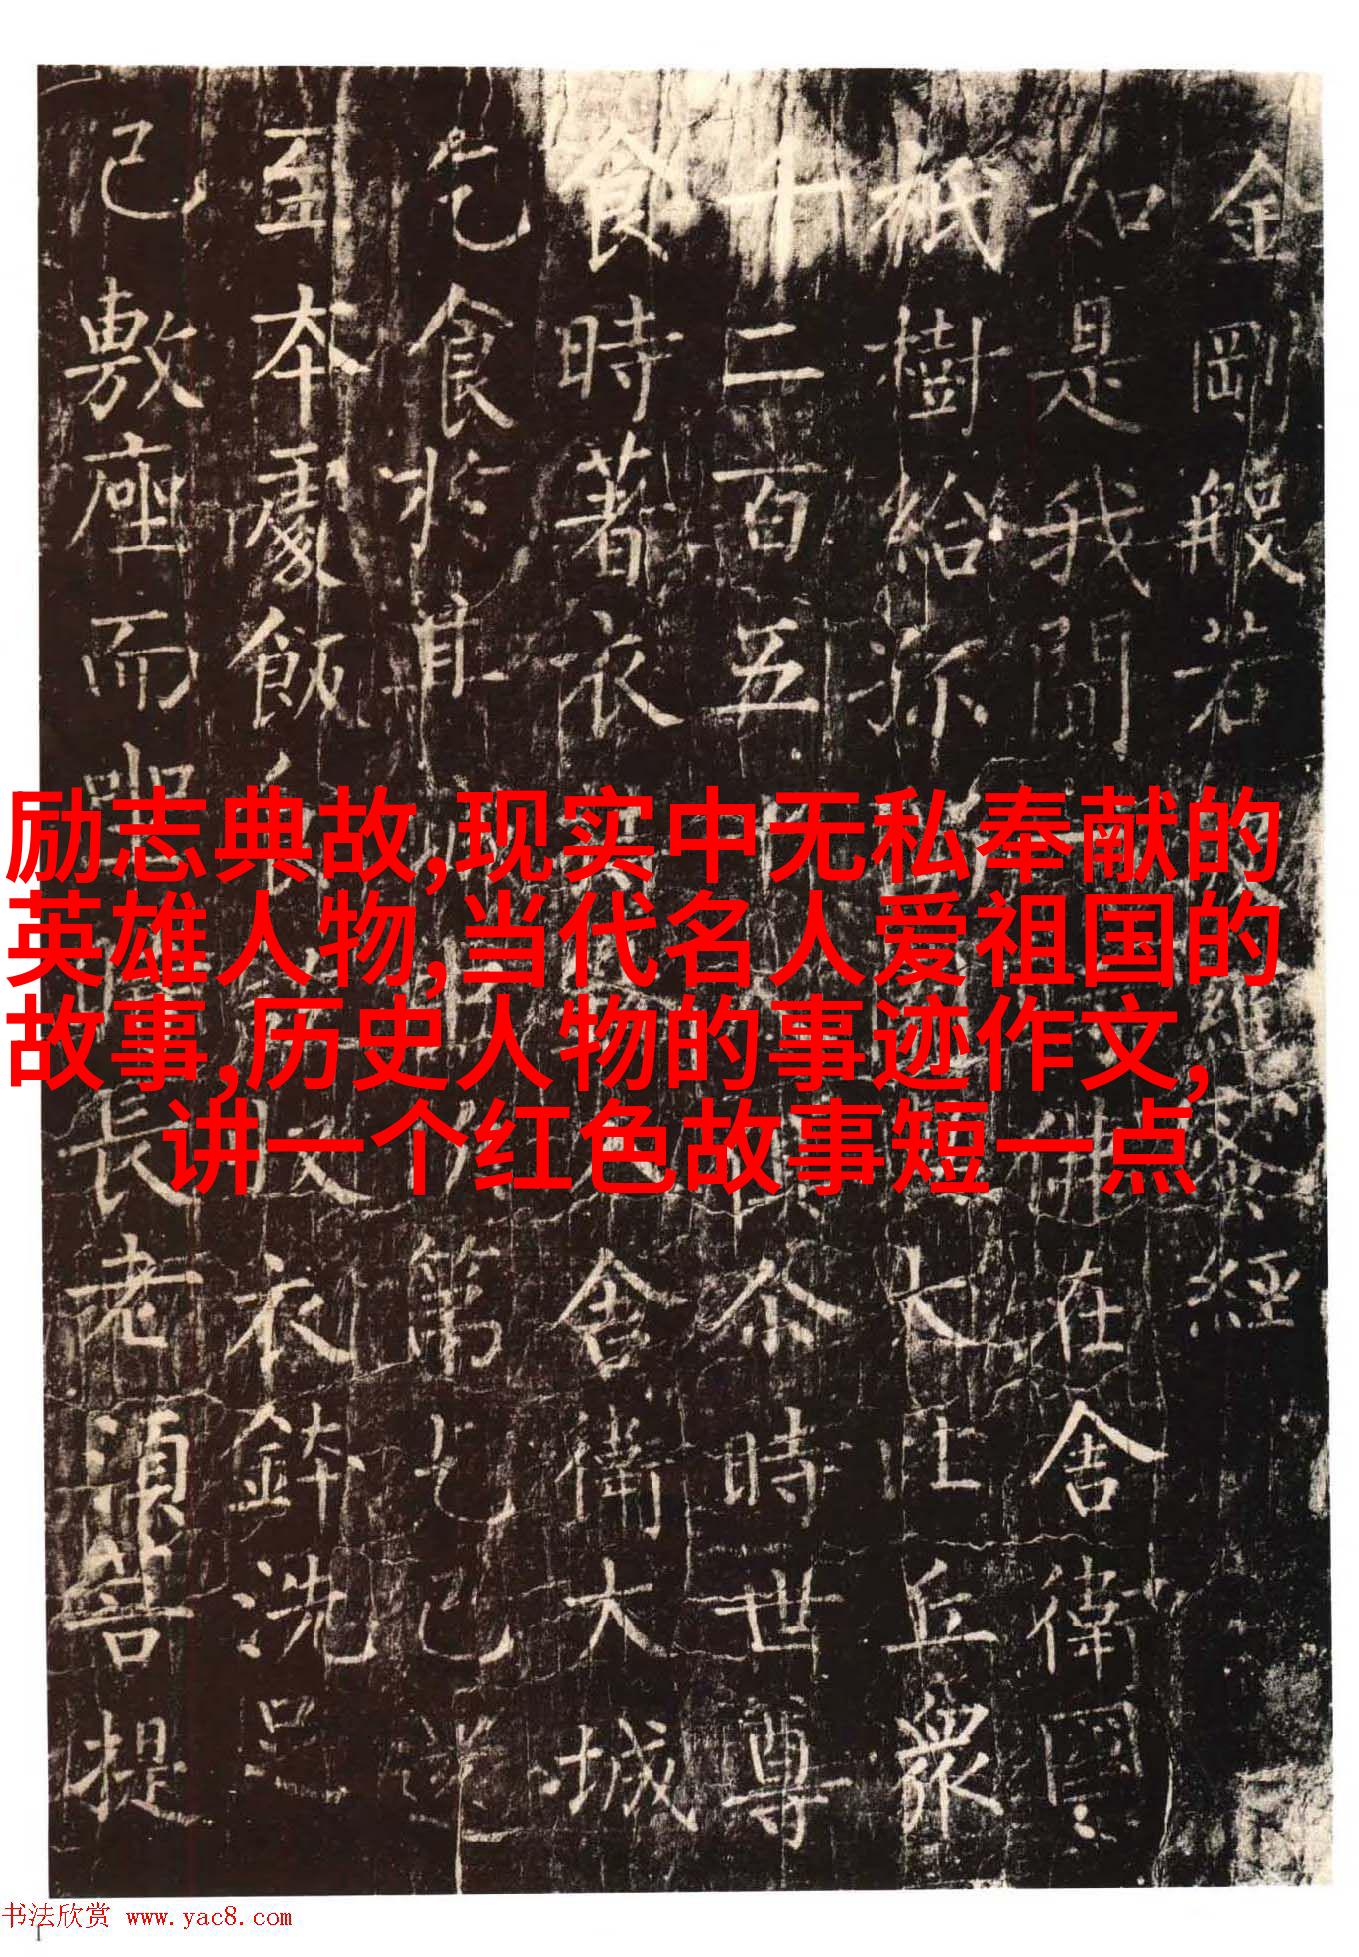 金剛般若羅蜜經
如是我聞佛在舍衛國
祇樹給孤大比丘眾
十二百五俱尒時世尊
食時著衣入舍衛大城
乞食於其次第乞已還
至本處飯食收衣鉢洗足
已敷座而坐長老須菩提
励志典故,现实中无私奉献的
英雄人物,当代名人爱祖国的
故事,历史人物的事迹作文,
讲一个红色故事短一点
书法欣赏 www.yac8.com